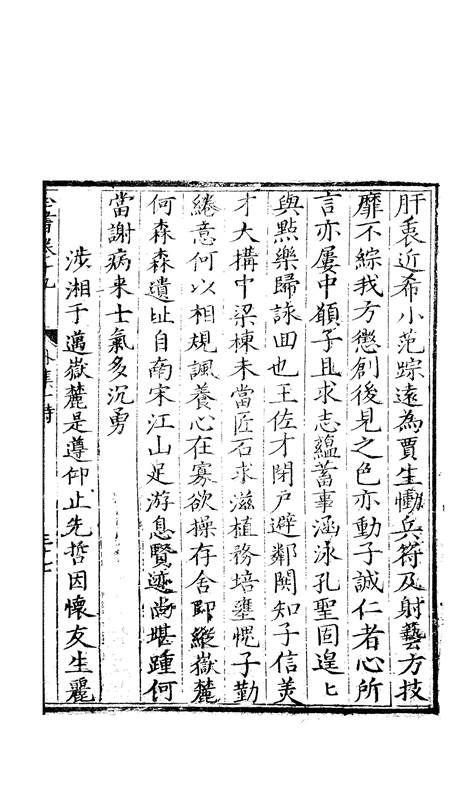 肝袠近希小范踪遠為賈生慟兵符及射藝方技
靡不綜我方懲創後見之色亦動子誠仁者心所
言亦屢中願子且求志蘊蓄事涵泳孔聖固遑匕
與點樂歸詠囬也王佐才閉戸避鄰閧知子信美
才大搆中梁棟未當匠石求滋植務培壅愧子勤
綣意何以相規諷養心在寡欲操存舍即縱嶽麓
何森森遺址自南宋江山足游息賢迹尚堪踵何
當謝病来士氣多沉勇
涉湘于邁嶽麓是遵仰止先哲因懷友生麗
全書卷十九
外集一 詩
三十七